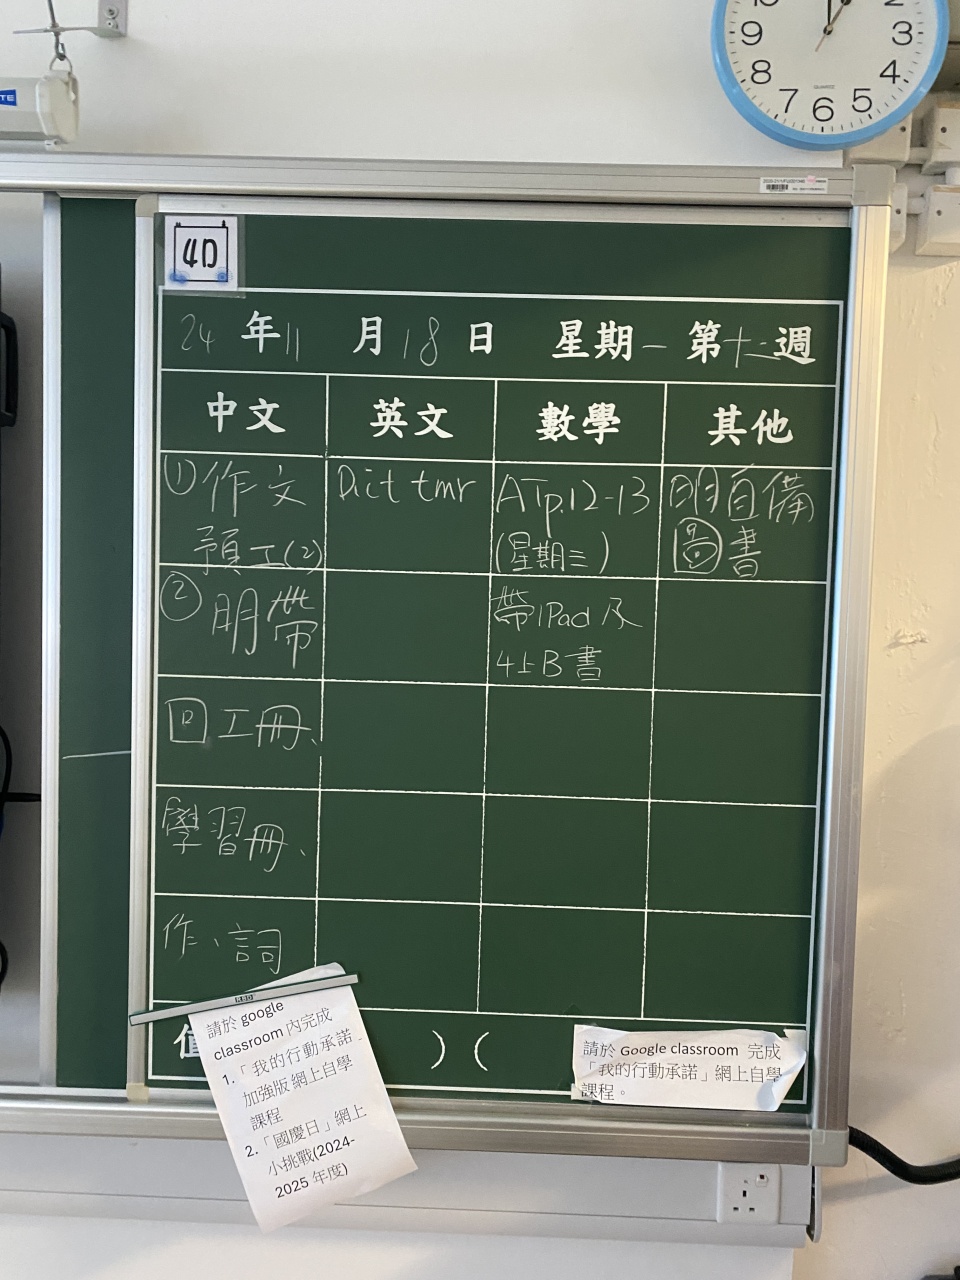 10 2
9 3
8 4
QUARTZ
7 6 5
4D
24年11月18日 星期一 第十二週
中文 英文 數學 其他
①作文
預工(2)
②明帶
工冊、
學習冊、
作、詞
Dict tmr
AT p.12-13
(星期三)
帶iPad及
4上B書
明自備
圖書
值
)(
請於 google
classroom 內完成
1.「我的行動承諾」
加強版網上自學
課程
2.「國慶日」網上
小挑戰(2024-
2025 年度)
請於 Google classroom 完成
「我的行動承諾」網上自學
課程。